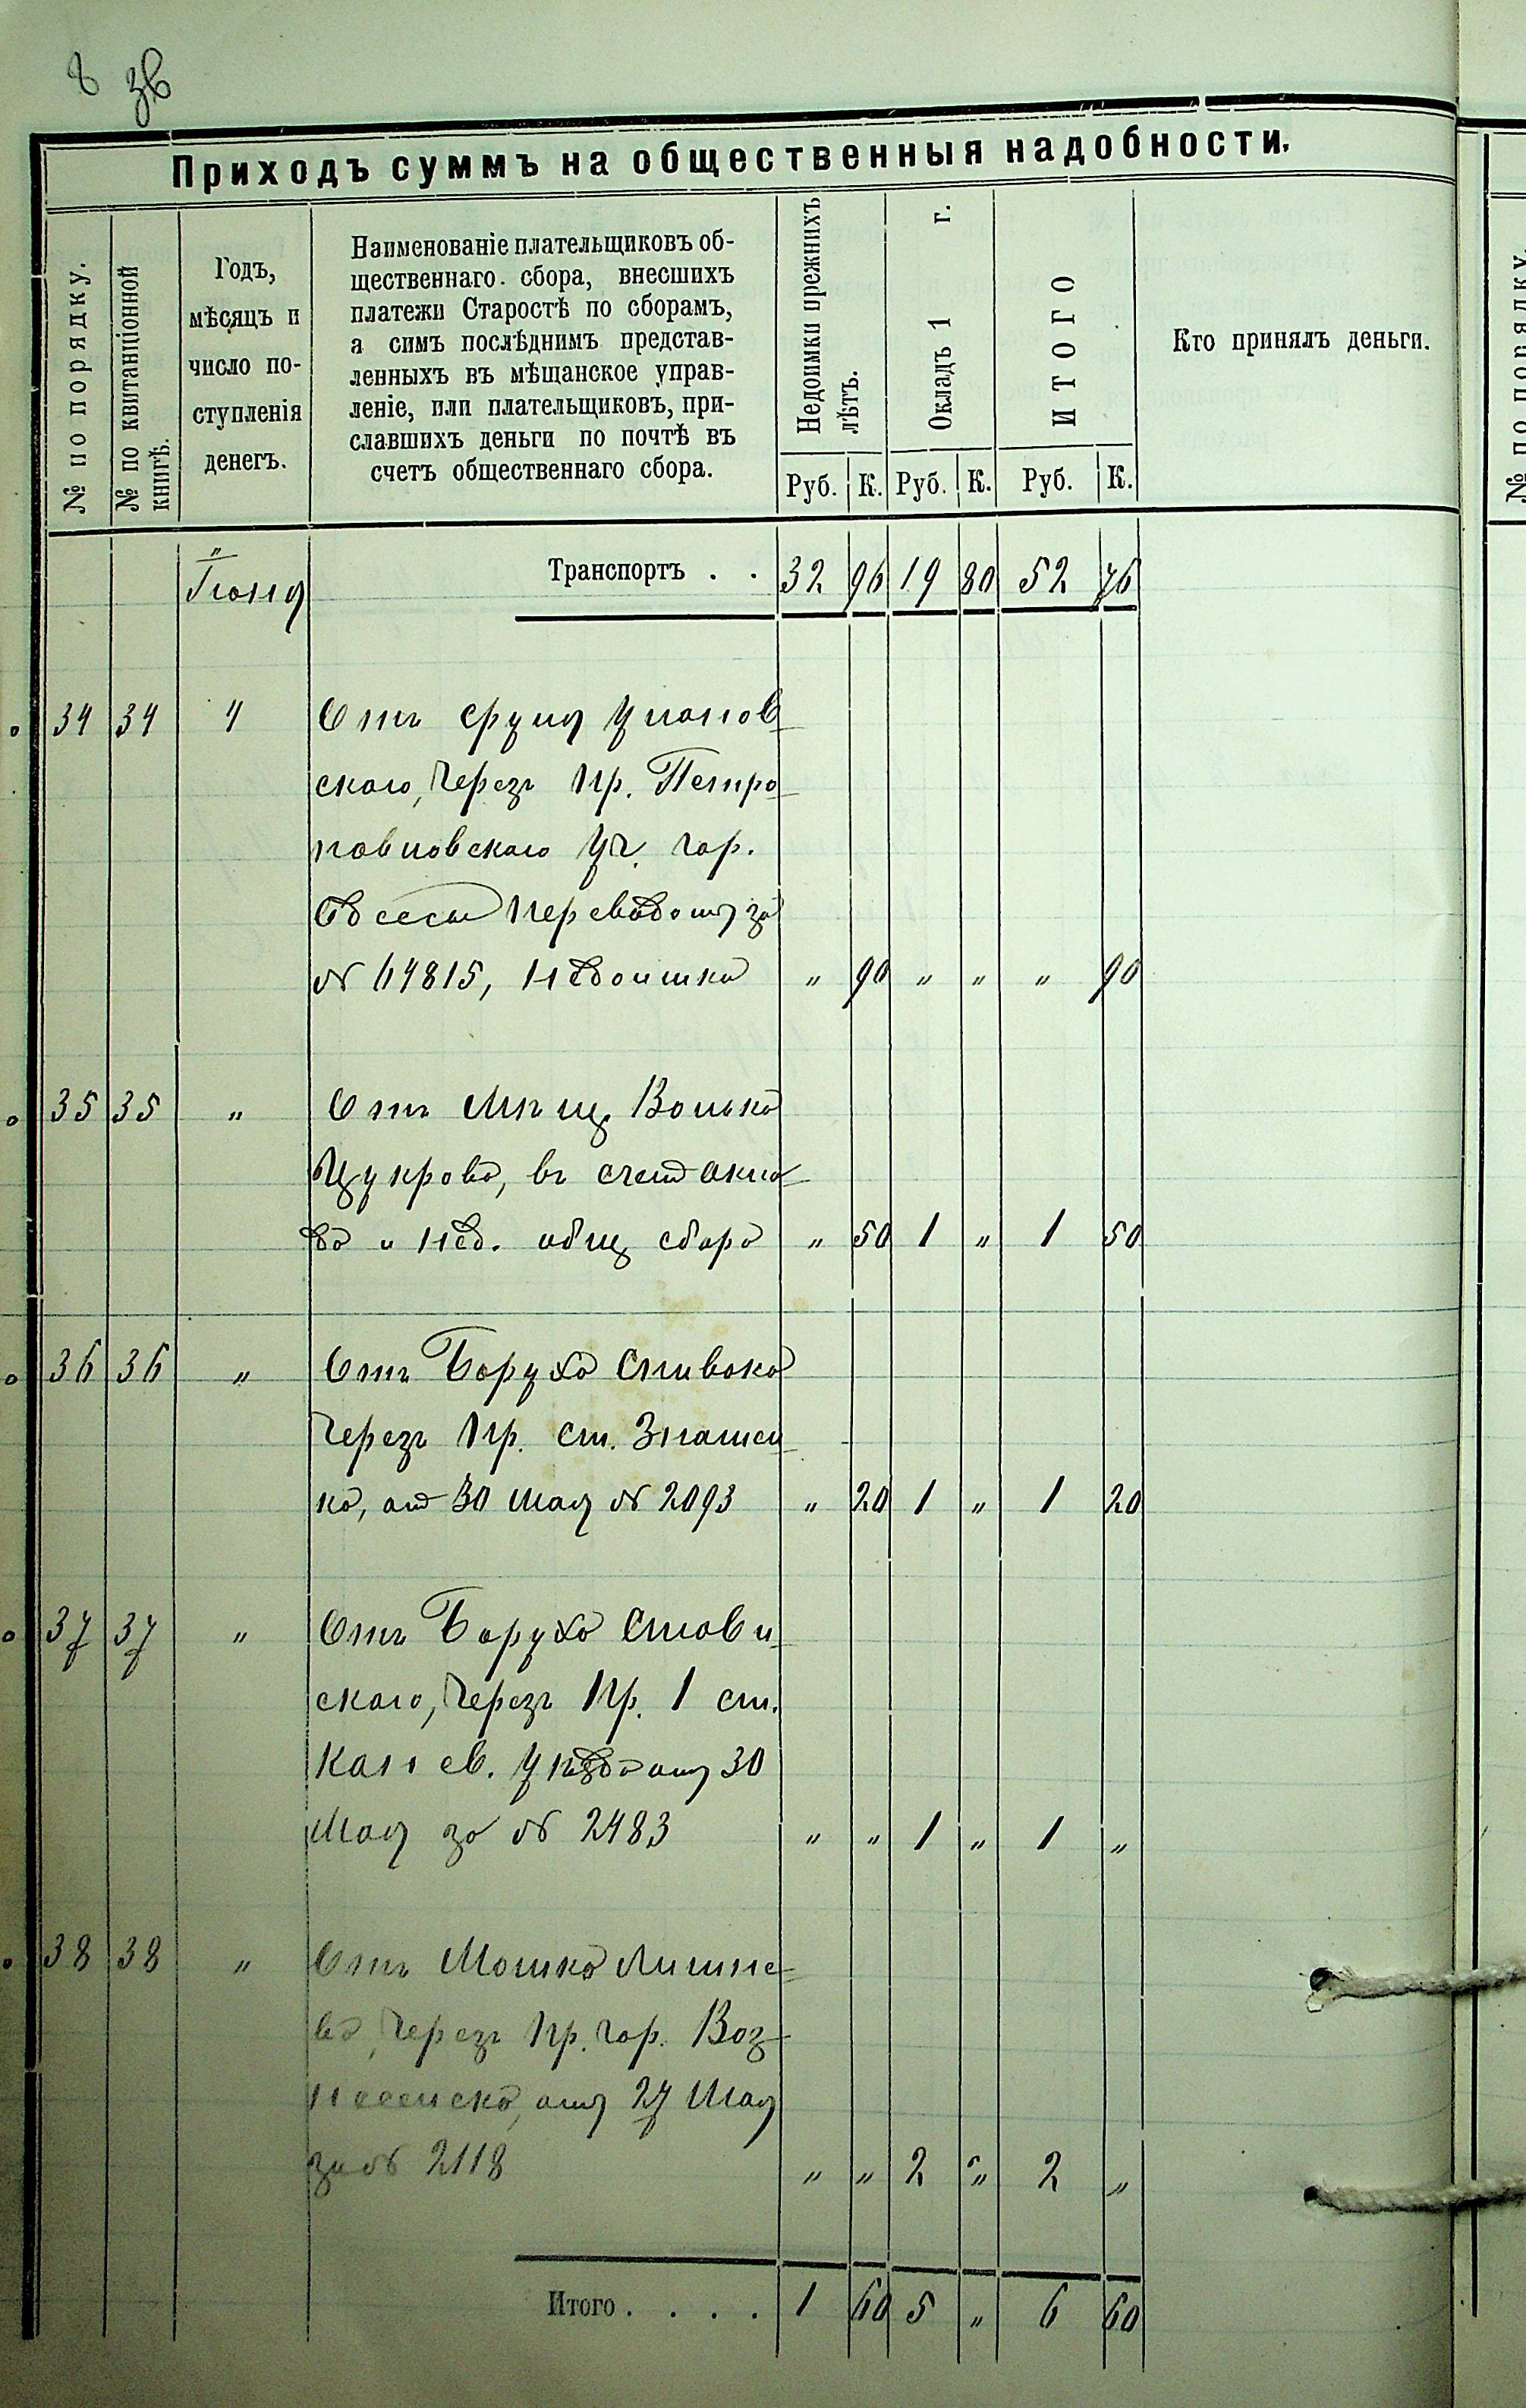 8 36
Приходъ суммъ на общественныя надобности.
№ по порядку.
№ по квитанціонной книгѣ.
Годъ,
мѣсяцъ и
число по-
ступленія
денегъ.
Наименованіе плательщиковъ об-
щественнаго сбора, внесшихъ
платежи Старостѣ по сборамъ,
а симъ послѣднимъ представ-
ленныхъ въ мѣщанское управ-
леніе, или плательщиковъ, при-
славшихъ деньги по почтѣ въ
счетъ общественнаго сбора.
Недоимки прежнихъ лѣтъ.
Окладъ 1 г.
ИТОГО
Кто принялъ деньги.
Руб. К. Руб. К. Руб. К.
Іюня Транспортъ . . 32 96 19 80 52 76
34 34 4 Отъ Сруля Уланов
скаго, Через Пр. Петро
павловскаго Уч. гор.
Одессы Переводом за
№ 64815, недоимки " 90 " " " 90
35 35 " Отъ Мѣщ. Волька
Цукрова, въ счет окла
да и Нед. общ сбора " 50 1 " 1 50
36 36 " Отъ Боруха Спивака
Через Пр. ст. Знамен
ка, от 30 Мая № 2093 " 20 1 " 1 20
37 37 " Отъ Боруха
скаго, Через Пр. 1 ст.
Канев. уѣзда от 30
Мая за № 2483 " " 1 " 1 "
38 38 " Отъ Мошка
ва, Через Пр. гор. Воз
несенска, от 27 Мая
за № 2118 " " 2 " 2 "
Итого . . . . 1 60 5 " 6 60
№ по порядку.